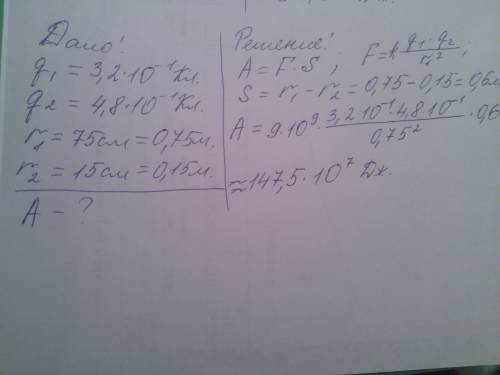 Дано:
q1 = 3,2·10⁻¹ Кл.
q2 = 4,8·10⁻¹ Кл.
r1 = 75см = 0,75м.
r2 = 15см = 0,15м.
A - ?
Решение:
A = F·S ; F = k q1·q2 / r1² ;
S = r1 - r2 = 0,75 - 0,15 = 0,6м
A = 9·10⁹ · 3,2·10⁻¹·4,8·10⁻¹ / 0,75² · 0,6
≈ 147,5·10⁷ Дж.